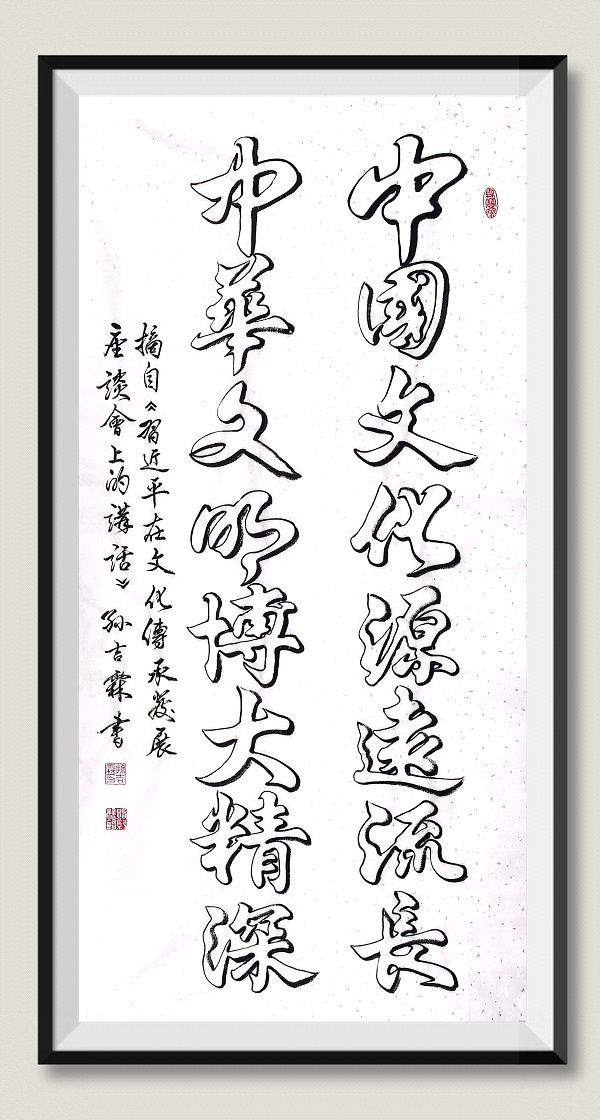 中國文化源遠流長
中華文明博大精深
摘自《習近平在文化傳承發展
座談會上的講話》孫吉霖書